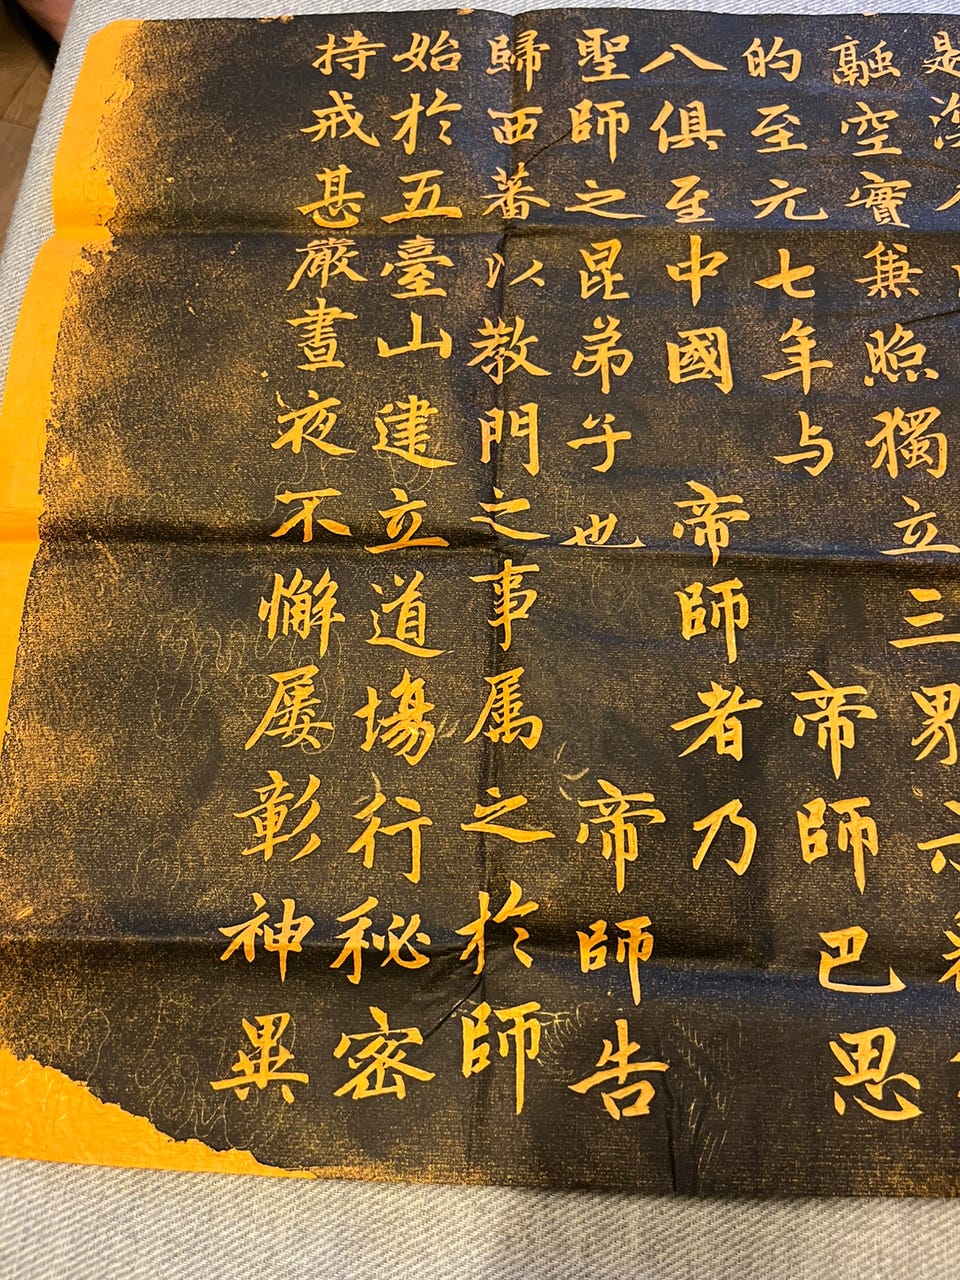 融空實兼照獨立三界
的至元七年与帝師巴思
八俱至中國帝師者乃
聖師之昆弟子也帝師告
歸西蕃以教門之事属之於師
始於五臺山建立道場行秘密
持戒甚嚴晝夜不懈屢彰神異